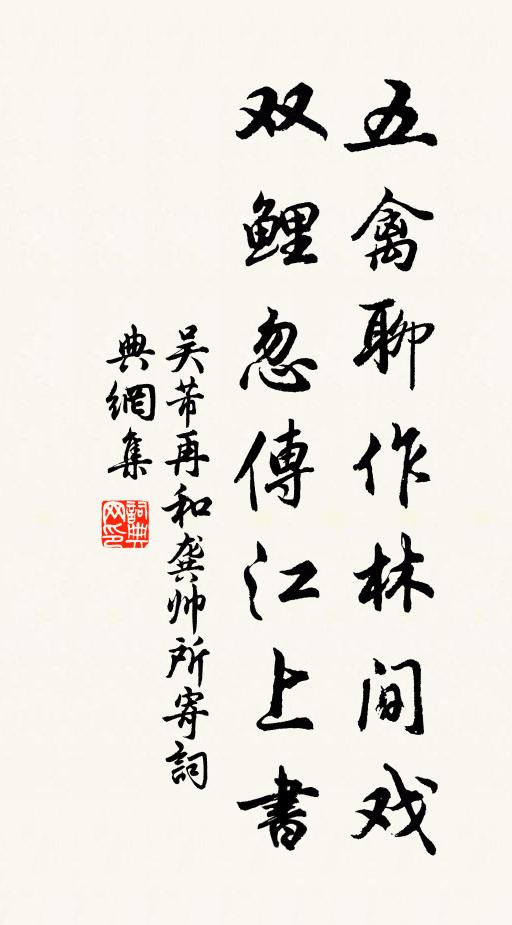 五禽聊作林间戏
双鲤忽傳江上書
吴芾再和龚帅所寄詞
典網集
詞典网印